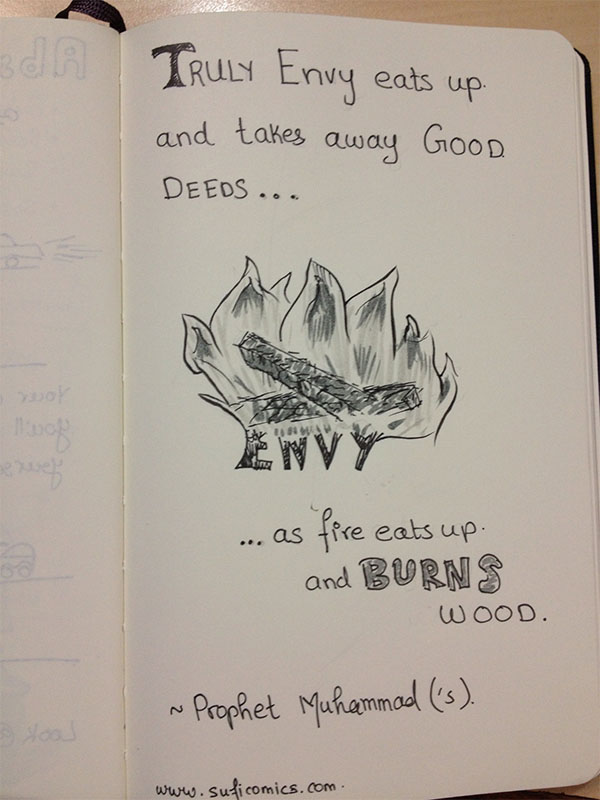 TRULY Envy eats up
and takes away GOOD
DEEDS...
ENVY
... as fire eats up
and BURNS
WOOD.
~ Prophet Muhammad ('s).
www.suficomics.com